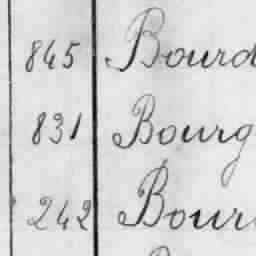 845 Bourd
831 Bourg
242 Bour